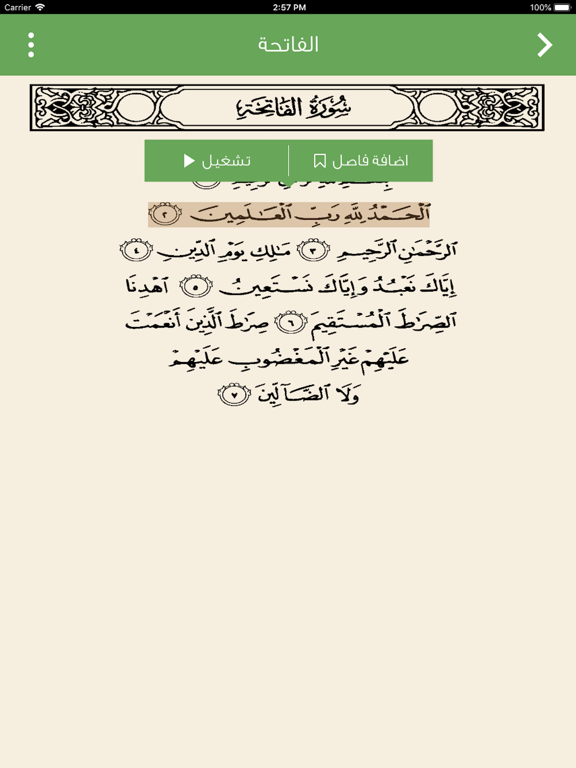 Carrier 2:57 PM 100%
الفاتحة
سُورَةُ الفَاتِحَةِ
اضافة فاصل تشغيل
ٱلْحَمْدُ لِلَّهِ رَبِّ ٱلْعَـٰلَمِينَ ٢
ٱلرَّحْمَـٰنِ ٱلرَّحِيمِ ٣ مَـٰلِكِ يَوْمِ ٱلدِّينِ ٤
إِيَّاكَ نَعْبُدُ وَإِيَّاكَ نَسْتَعِينُ ٥ ٱهْدِنَا
ٱلصِّرَٰطَ ٱلْمُسْتَقِيمَ ٦ صِرَٰطَ ٱلَّذِينَ أَنْعَمْتَ
عَلَيْهِمْ غَيْرِ ٱلْمَغْضُوبِ عَلَيْهِمْ
وَلَا ٱلضَّآلِّينَ ٧